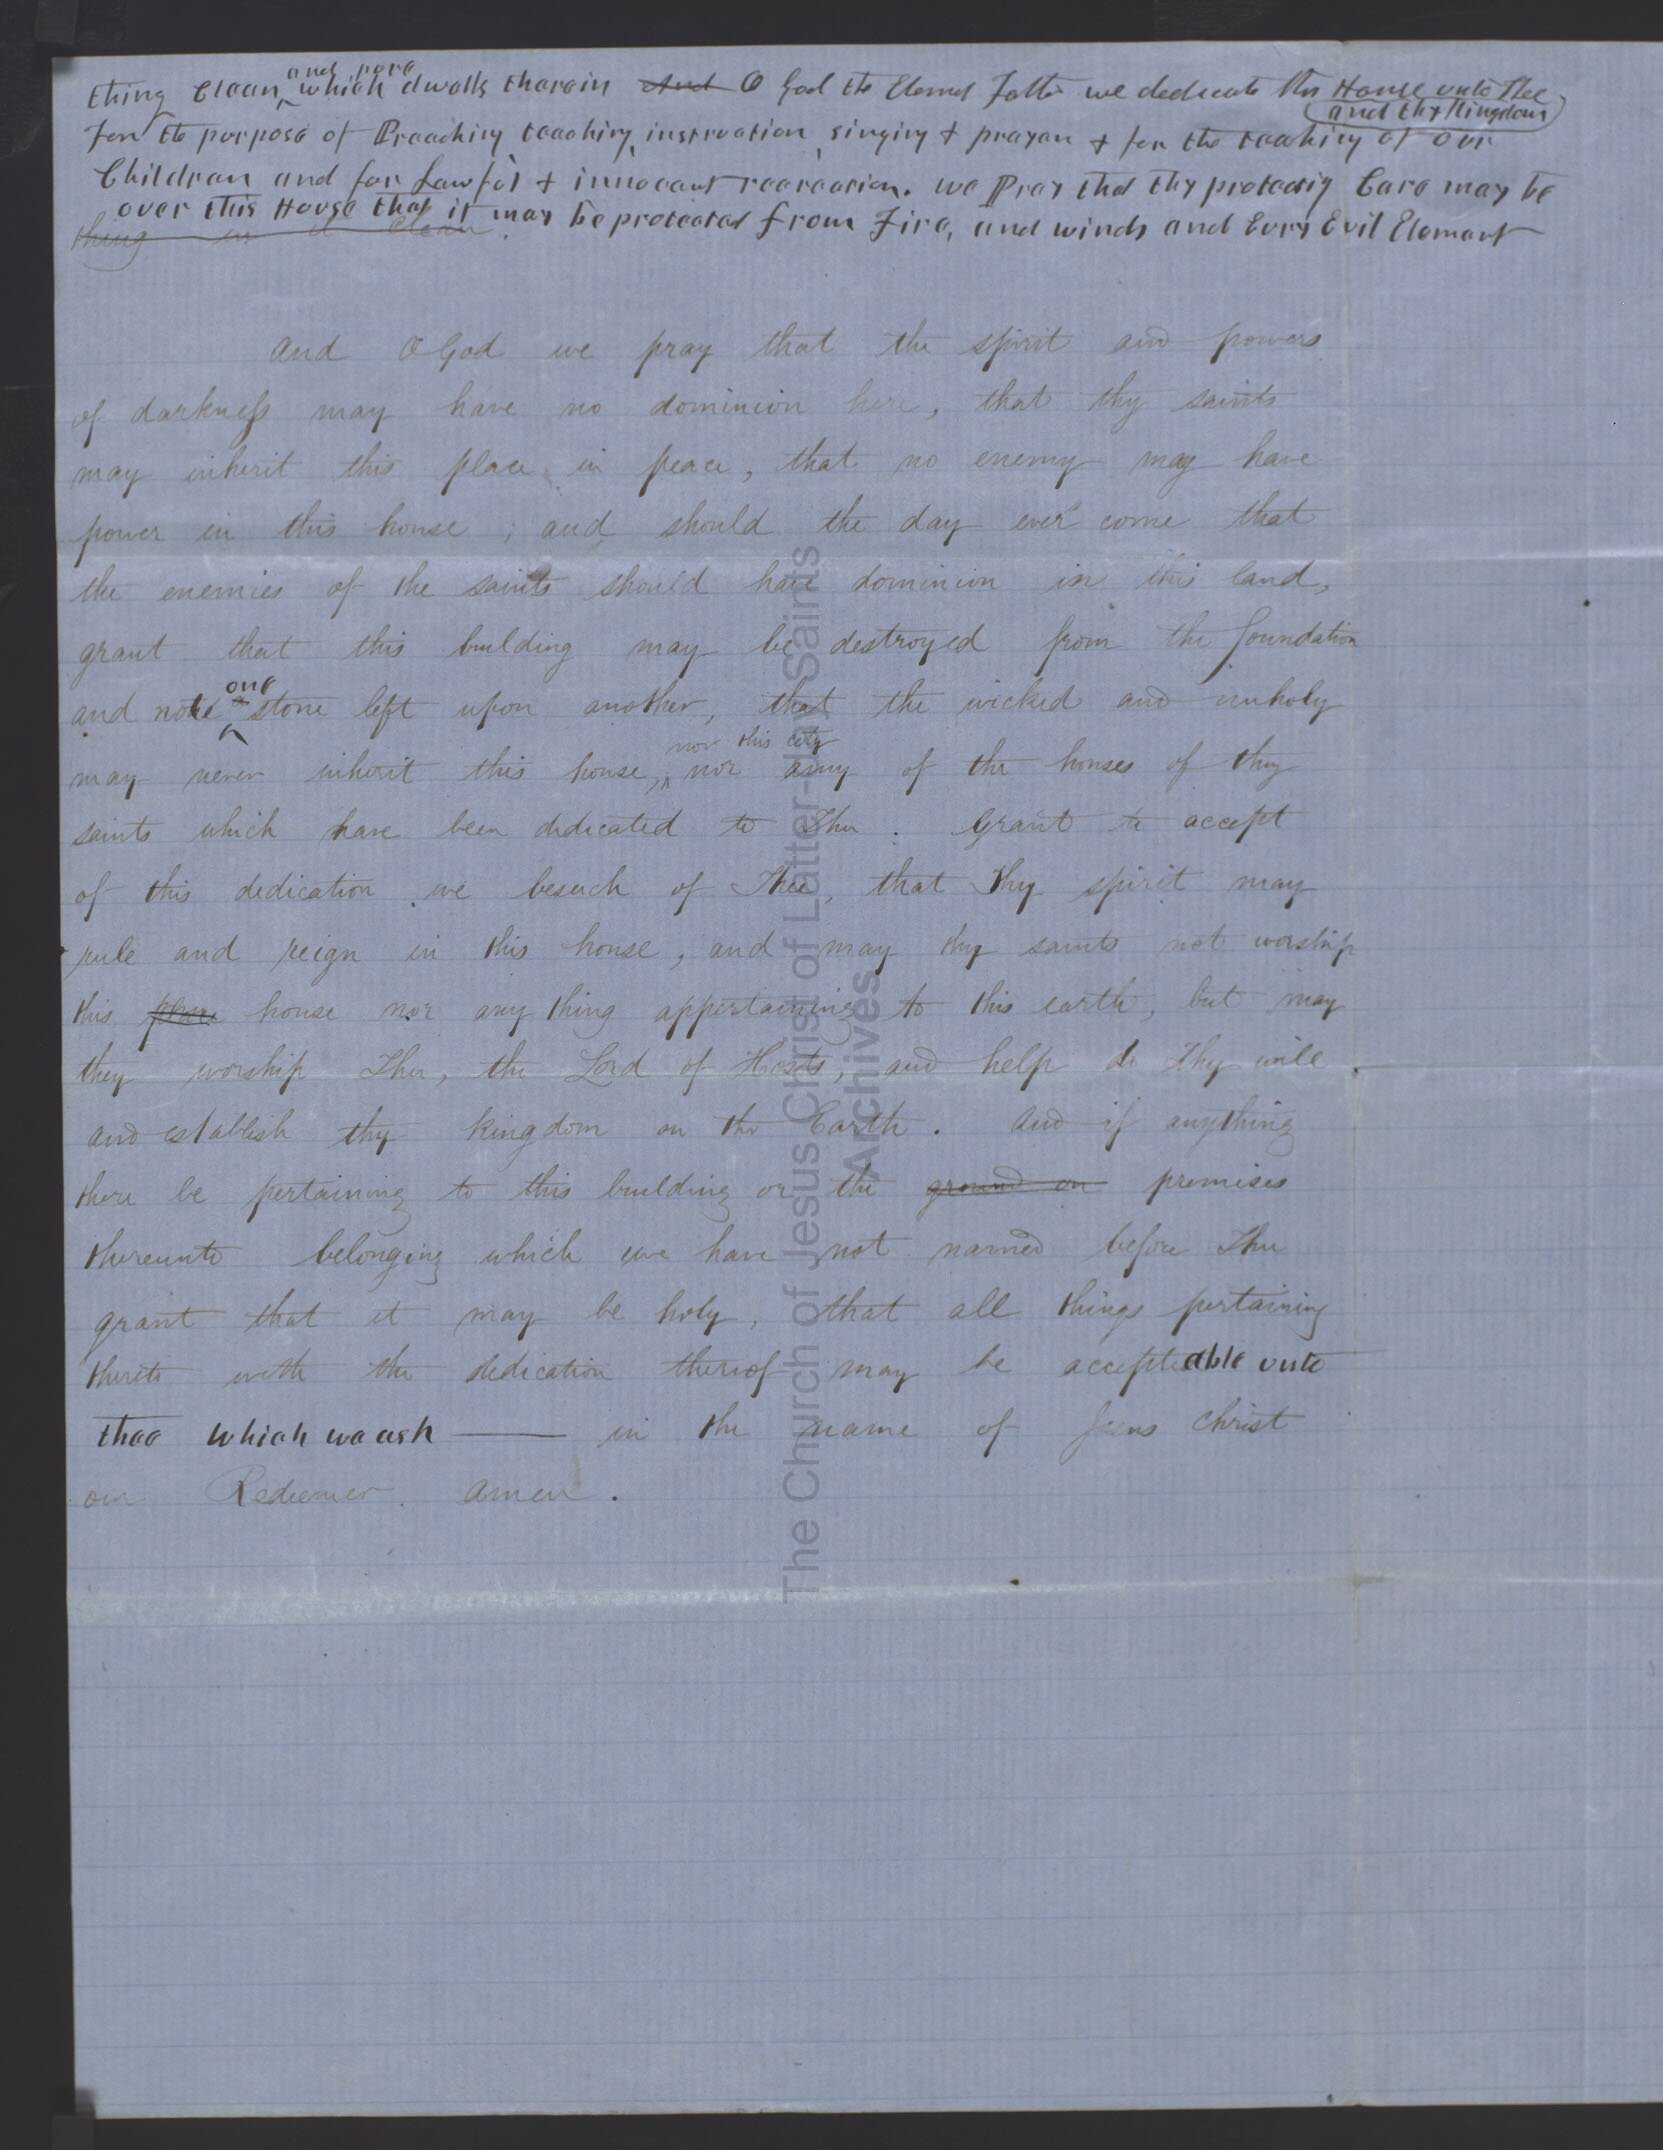 thing Clean and pure which dwells therein And O God the Eternal Father we dedicate this House unto Thee
and thy Kingdom
For the purpose of Preaching teaching, instruction, singing & prayer & for the teaching of our
Children and for Lawful & innocent recreation. we Pray that thy protecting Care may be
over this House that it may be protected from Fire, and winds and Evry Evil Element
thing in it clean
And O God we pray that the spirit and powers
of darkness may have no dominion here, that thy saints
may inherit this place in peace, that no enemy may have
power in this house; and should the day ever come that
the enemies of the saints should have dominion in this land,
grant that this building may be destroyed from the foundation
and not one stone left upon another, that the wicked and unholy
may never inherit this house, nor this city nor any of the houses of thy
saints which have been dedicated to Thee. Grant to accept
of this dedication we beseech of Thee, that Thy spirit may
rule and reign in this house, and may thy saints not worship
this place house nor any thing appertaining to this earth, but may
they worship Thee, the Lord of Hosts, and help do Thy will
and establish thy kingdom on the Earth. And if anything
there be pertaining to this building or the ground on premises
thereunto belonging which we have not named before Thee
grant that it may be holy, that all things pertaining
thereto with the dedication thereof may be acceptable unto
thee which we ask —— in the name of Jesus Christ
our Redeemer. Amen.
The Church of Jesus Christ of Latter-day Saints
Archives